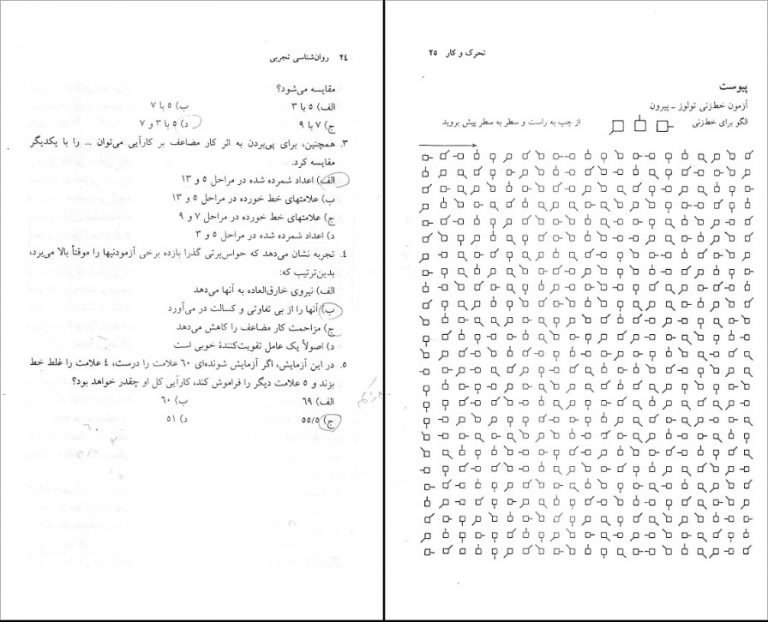 ۲۴ روان‌شناسی تجربی
مقایسه می‌شود؟
الف) ۵ با ۳ ب) ۵ با ۷
ج) ۷ با ۹ د) ۵ با ۳ و ۷
۳. همچنین، برای پی‌بردن به اثر کار مضاعف بر کارآیی می‌توان ... را با یکدیگر
مقایسه کرد.
الف) اعداد شمرده شده در مراحل ۵ و ۱۳
ب) علامتهای خط خورده در مراحل ۵ و ۱۳
ج) علامتهای خط خورده در مراحل ۷ و ۹
د) اعداد شمرده شده در مراحل ۵ و ۳
۴. تجربه نشان می‌دهد که حواس‌پرتی گذرا بازده برخی آزمودنیها را موقتاً بالا می‌برد،
بدین‌ترتیب که:
الف) نیروی خارق‌العاده به آنها می‌دهد
ب) آنها را از بی تفاوتی و کسالت در می‌آورد
ج) مزاحمت کار مضاعف را کاهش می‌دهد
د) اصولاً یک عامل تقویت‌کنندهٔ خوبی است
۵. در این آزمایش، اگر آزمایش شونده‌ای ۶۰ علامت را درست، ۴ علامت را غلط خط
بزند و ۵ علامت دیگر را فراموش کند، کارآیی کل او چقدر خواهد بود؟
الف) ۶۹ ب) ۶۰
ج) ۵۵/۵ د) ۵۱
تحرک و کار ۲۵
پیوست
آزمون خط‌زنی تولوز ـ پیرون
الگو برای خط‌زنی از چپ به راست و سطر به سطر پیش بروید